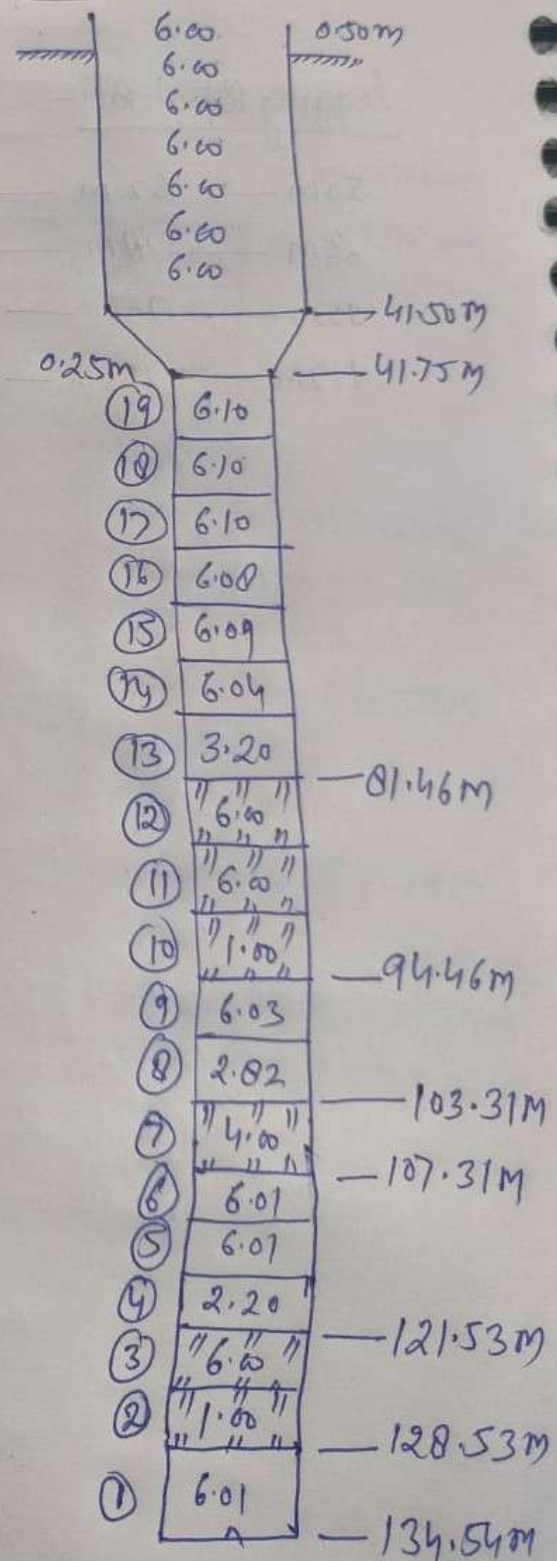 6.00 0.50m
6.00
6.00
6.00
6.00
6.00
6.00
41.50m
0.25m 41.75m
19 6.10
18 6.10
17 6.10
16 6.08
15 6.09
14 6.04
13 3.20
81.46m
12 6.00
11 6.00
10 1.00
94.46m
9 6.03
8 2.82
103.31m
7 4.00
107.31m
6 6.01
5 6.01
4 2.20
121.53m
3 6.00
2 1.00
128.53m
1 6.01
134.54m